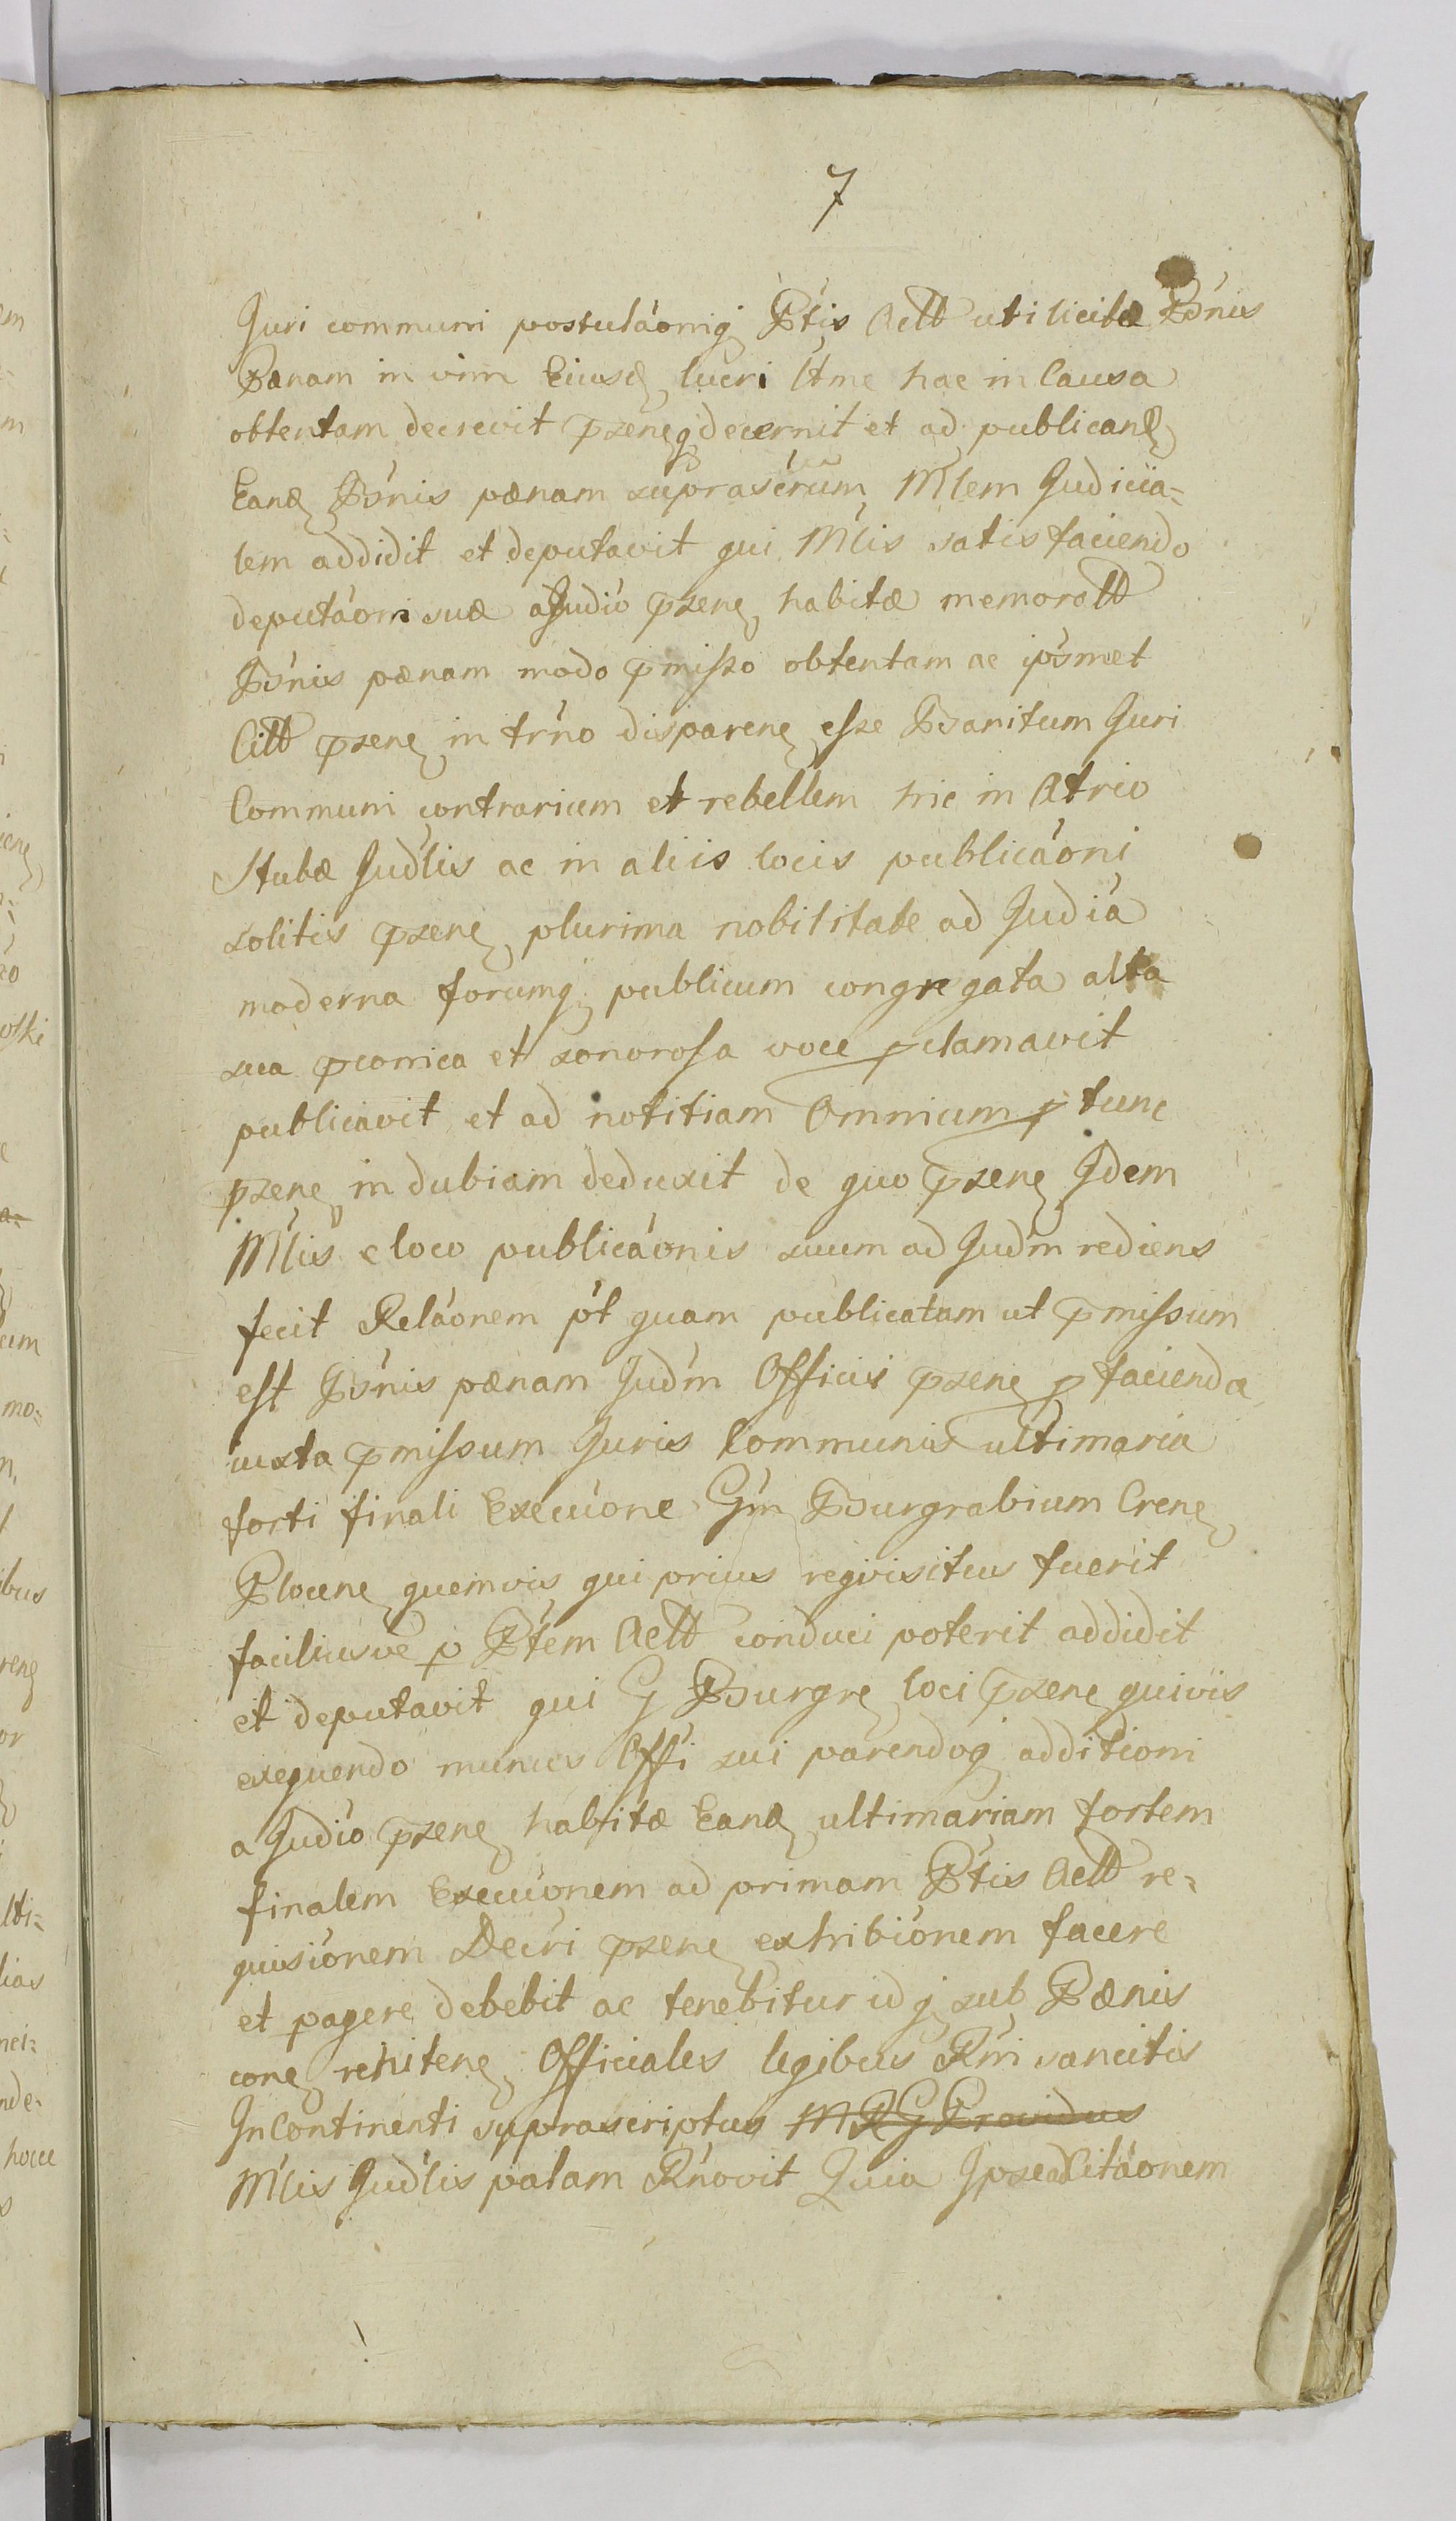 7
Juri communi postulaoniq Ptis Actt uti licitæ Bonis
Pænam in vim Eiusd lucri Ultme hac in Causa
obtentam decrevit pseneq decernit et ad publicand
Eand Bonis pænam suprascrum Mlem Judicia-
lem addidit et deputavit qui Mlis satisfaciendo
deputaoni suæ a Judio psene habitæ memoratt
Bonis pænam modo pmisso obtentam ac ipsmet
Citt psene in trno disparene esse Banitum Juri
Communi contrarium et rebellem hic in Atrio
Stubæ Judlis ac in aliis locis publicaoni
solitis psene plurima nobilitate ad Judia
moderna forumq publicum congregata alta
sua pconica et sonorosa voce pclamavit
publicavit et ad notitiam Omnium p tunc
psene indubiam deduxit de quo psene Idem
Mlis e loco publicaonis suum ad Judm rediens
fecit Relaonem pt quam publicatam ut pmissum
est Bonis pænam Judm Officii psene p facienda
iuxta pmissum Juris Communis ultimaria
forti finali Execuone Gm Burgrabium Crene
Plocene quemvis qui prius reqvisitus fuerit
faciliusve p Ptem Actt conduci poterit addidit
et deputavit qui G Burgre loci psene quivis
exequendo munus Offi sui parendoq additioni
a Judio psene habitæ Eand ultimariam fortem
finalem Execuonem ad primam Ptis Actt re-
quisionem Decri psene exhibionem facere
et pagere debebit ac tenebitur idq sub Pænis
cone renitene Officiales legibus Rni sancitis
Incontinenti suprascriptus M R G Providus
Mlis Judlis palam Rnovit Quia Ipse ad Citaonem